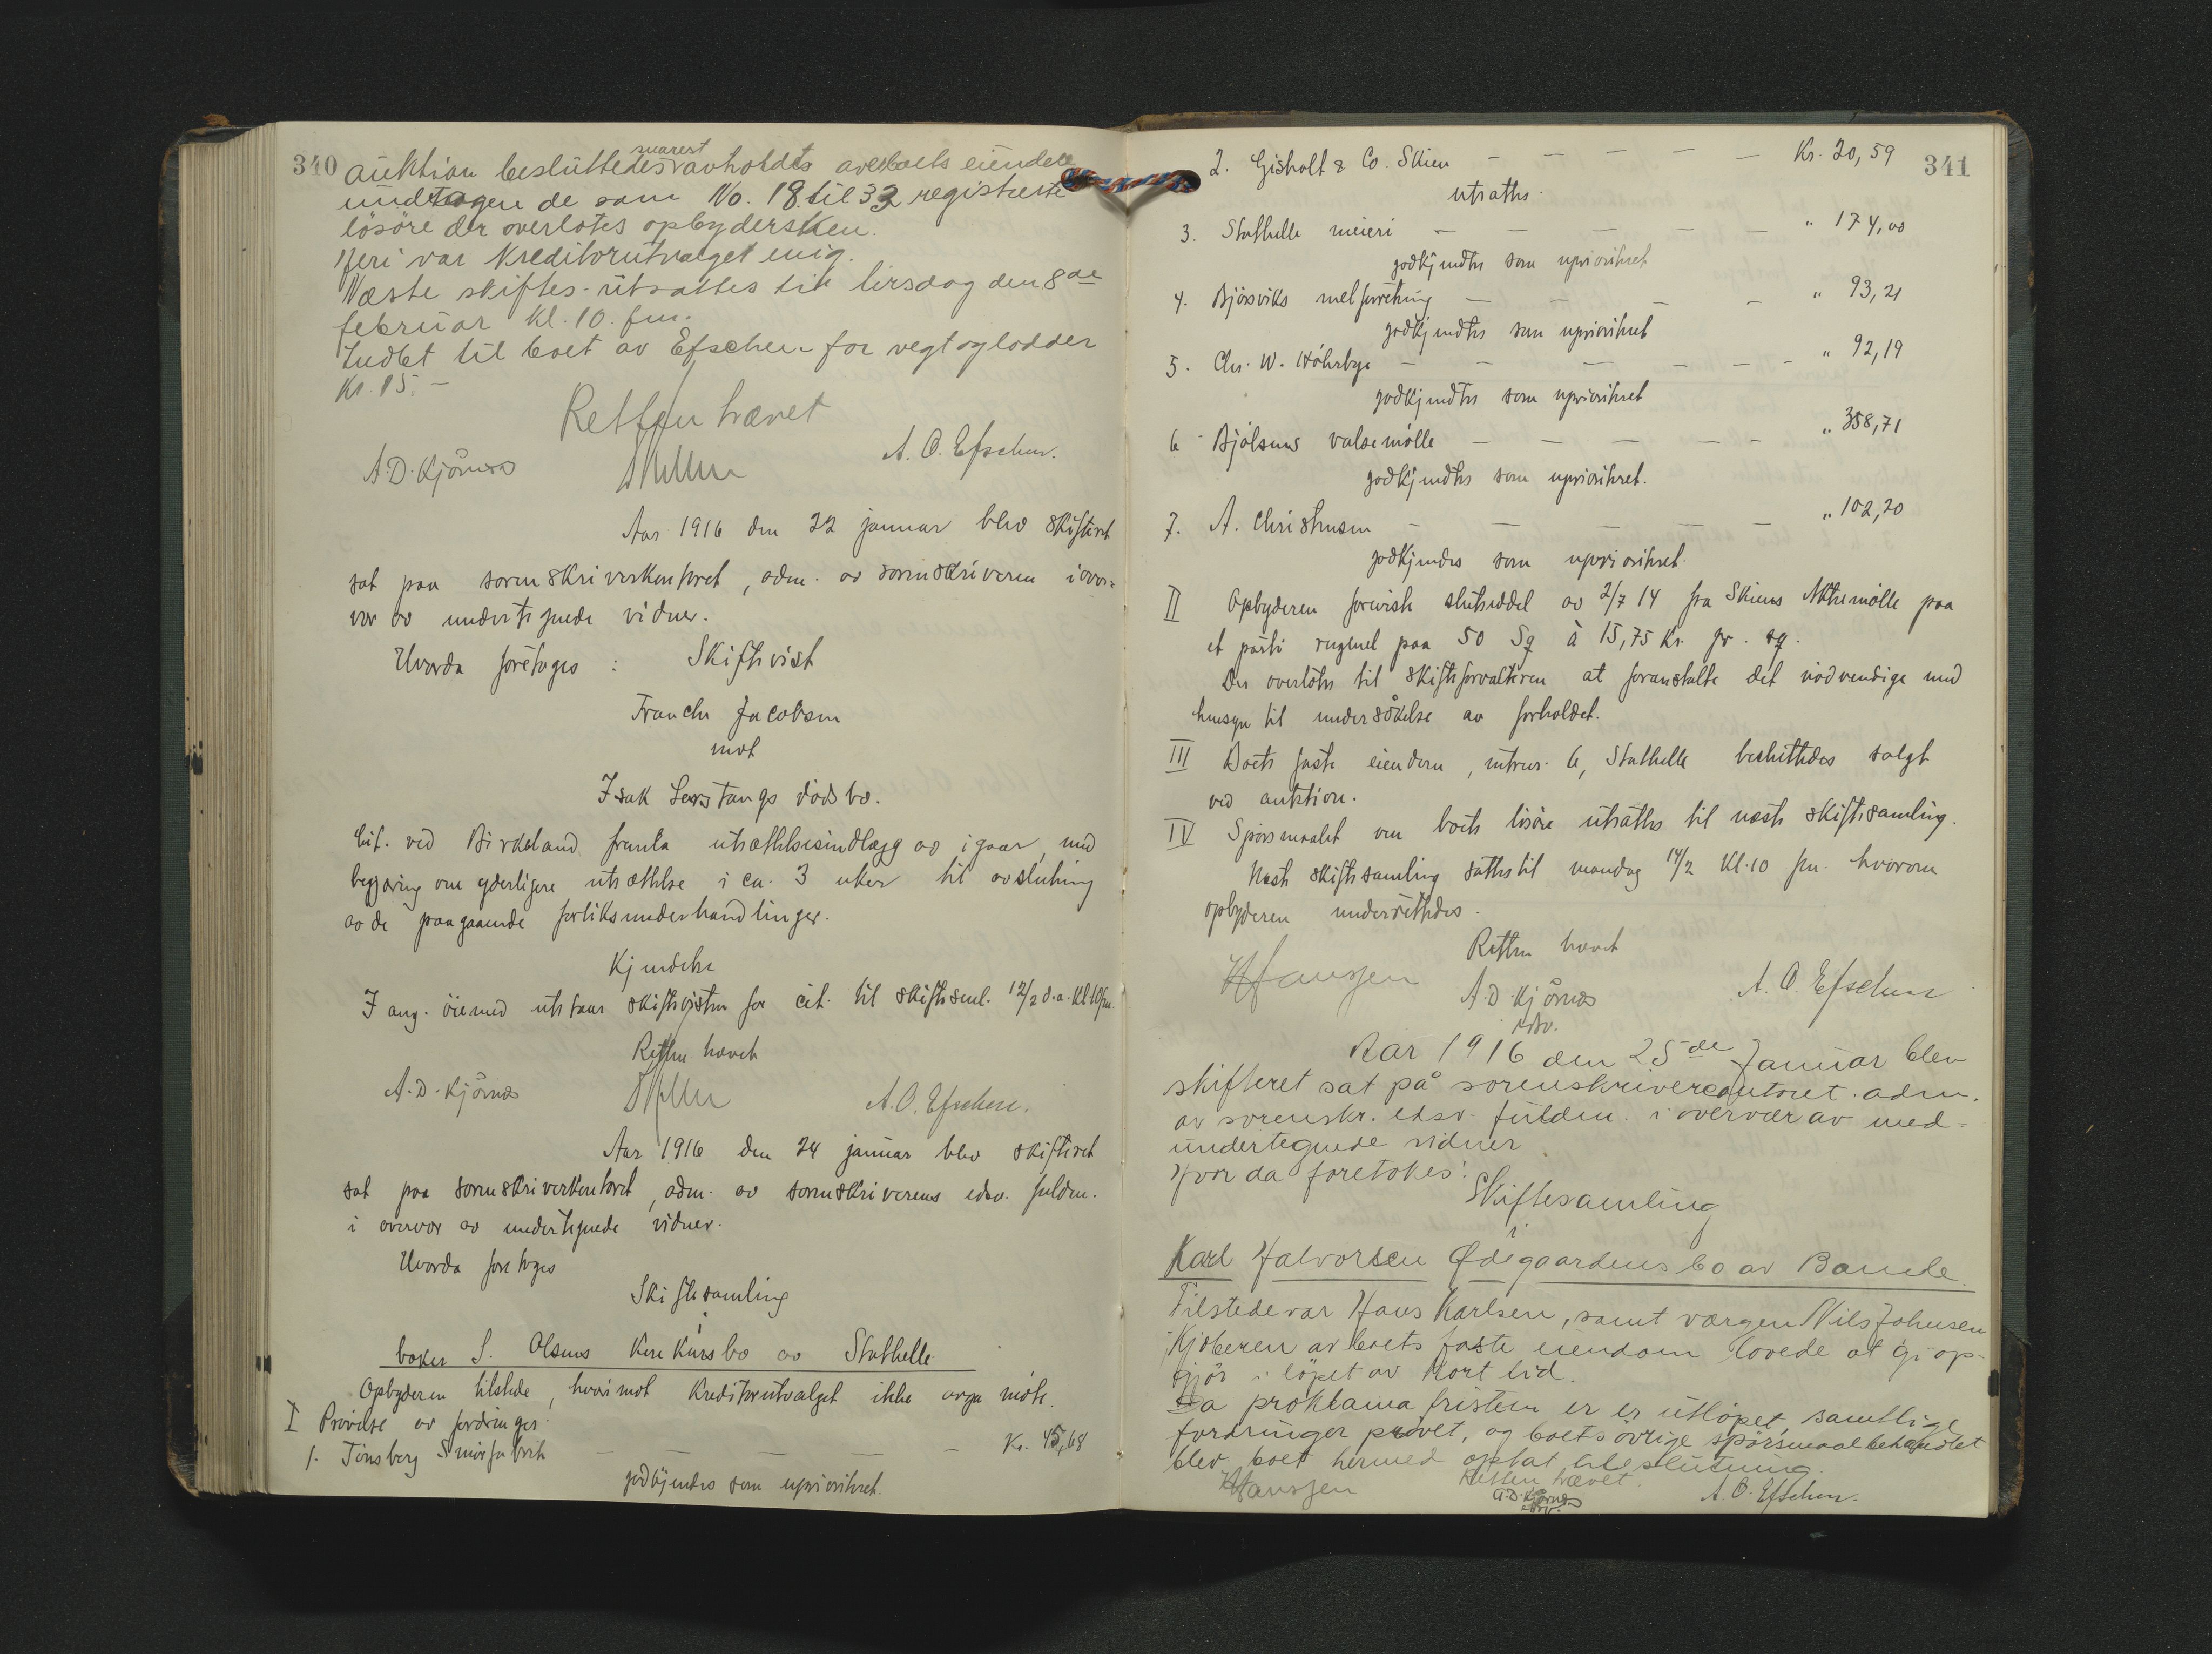 340
auktion besluttedes snarest avholdt av boets eiendele
undtagen de som No. 18 til 33 registrerte
løsøre der overlotes opbydersken.
Heri var kreditorutvalget enig.
Næste skiftes. utsattes til tirsdag den 8de
februar kl. 10. fm.
Indbt til boet av Efschen for vegt og lodder
Kr. 15.-
Retten hævet
A. D. Kjørnes
A. O. Efschen.
Aar 1916 den 22 januar blev skifteret
sat paa sorenskriverkontoret, adm. av sorenskriveren i over-
vær av undertegnede vidner.
Hvorda foretoges: Skiftetvist
Franche Jacobsen
mot
Isak Lerstangs dødsbo.
Cit. ved Birkeland framla utsættelsesindlægg av igaar, med
begjæring om yderligere utsættelse i ca. 3 uker til avslutning
av de paagaaende forliksunderhandlinger.
Kjendelse
I ang. øiemed utstaar skiftetvisten for cit. til skiftesml. 12/2 d.a. kl 10 fm.
Retten hævet
A. D. Kjørnes
A. O. Efschen.
Aar 1916 den 24 januar blev skifteret
sat paa sorenskriverkontoret, adm. av sorenskriverens edsv. fuldm.
i overvær av undertegnede vidner.
Hvorda foretoges
Skiftesamling
i
baker S. Olsens konkursbo av Stathelle.
Opbyderen tilstede, hvorimot kreditorutvalget ikke avga møte.
I Prøvelse av fordringer.
1. Tønsberg Smørfabrik — — — — — Kr. 45,68
godkjendes som uprioritert.
341
2. Gisholt & Co. Skien — — — — — Kr. 20,59
utsattes.
3. Stathelle meieri — — — — — " 174,00
godkjendtes som uprioritert
4. Bjørsviks melforretning — — — — " 93,21
godkjendtes som uprioritert
5. Chr. W. — — — — — " 92,19
godkjendtes som uprioritert
6. Bjølsens valsemølle — — — — — " 358,71
godkjendtes som uprioritert.
7. A. Christensen — — — — — " 102,20
godkjendes som uprioritert.
II Opbyderen foreviste slutseddel av 2/7 14 fra Skiens Aktiemølle paa
et parti rugmel paa 50 Sq à 15,75 Kr. pr. sq.
Det overlotes til skifteforvalteren at foranstalte det nødvendige med
hensyn til undersøkelse av forholdet.
III Boets faste eiendom, mtrnr. 6, Stathelle besluttedes solgt
ved auktion.
IV Spørsmaalet om boets løsøre utsattes til næste skiftesamling.
Næste skiftesamling sattes til mandag 14/2 kl. 10 fm. hvorom
opbyderen underrettedes.
Retten hævet
HHanssen
A. D. Kjørnes
edsv.
A. O. Efschen
Aar 1916 den 25de Januar blev
skifteret sat på sorenskrivercontoret. adm.
av sorenskr. edsv. fuldm. i overvær av med-
undertegnede vidner
Hvor da foretokes:
Skiftesamling
i
Karl Halvorsen Ødegaardens bo av Bamle.
Tilstede var Hans Karlsen, samt værgen Nils Johnsen
Kjøberen av boets faste eiendom lovede at gi op-
gjør i løpet av kort tid.
Da proklamafristen er er utløpet, samtlige
fordringer prøvet, og boets øvrige spørsmaal behandlet
blev boet hermed optat til slutning.
Retten hævet.
HHanssen
A. D. Kjørnes
edsv.
A. O. Efschen.